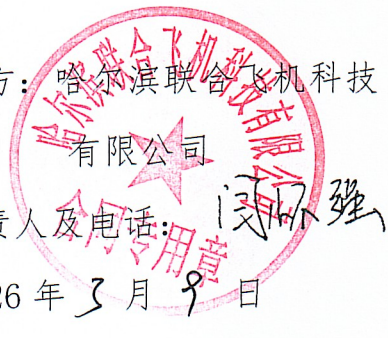 方：哈尔滨联合飞机科技
有限公司
责人及电话：闫怀强
26年3月9日
哈尔滨联合飞机科技有限公司
合同专用章